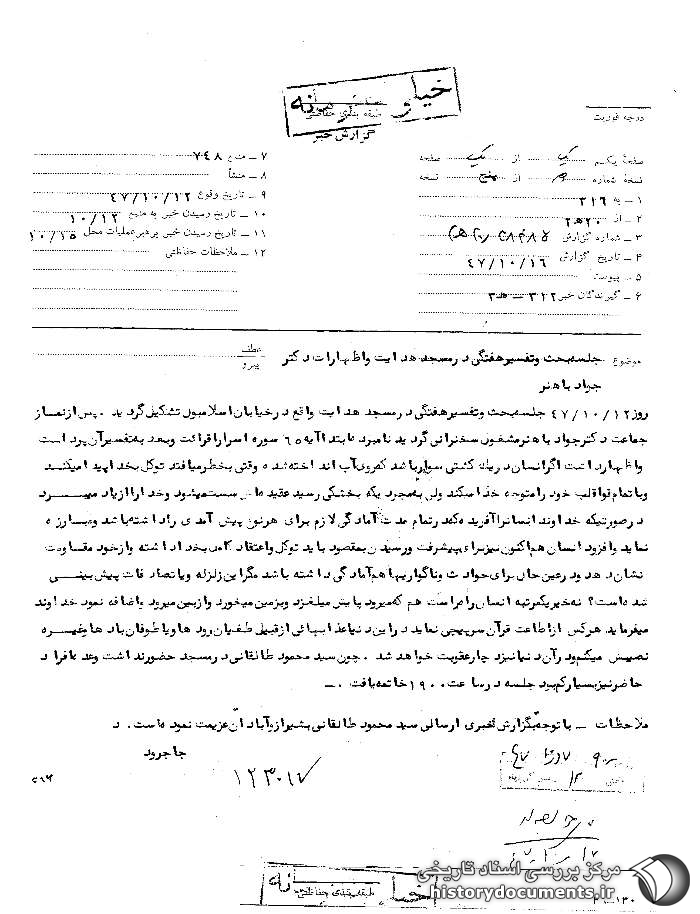 خیلی محرمانه
طبقه بندی حفاظتی
گزارش خبر
درجه فوریت
صفحه یکم یک از یک صفحه
نسخه شماره از پنج نسخه
۱ ـ به ۳۱۶
۲ ـ از ۲۰ ه ۲
۳ ـ شماره گزارش
۴ ـ تاریخ گزارش ۴۷/۱۰/۱۶
۵ ـ پیوست
۶ ـ گیرندگان خبر ۳۲۲ ـ ه ۳
۷ ـ منبع ۷۴۸
۸ ـ منشأ
۹ ـ تاریخ وقوع ۴۷/۱۰/۱۲
۱۰ ـ تاریخ رسیدن خبر به منبع ۱۰/۱۲
۱۱ ـ تاریخ رسیدن خبر برهبر عملیات محل ۱۰/۱۵
۱۲ ـ ملاحظات حفاظتی
موضوع جلسه بحث وتفسیر هفتگی در مسجد هدایت واظهارات دکتر
جواد باهنر
عطف
پیرو
روز ۴۷/۱۰/۱۲ جلسه بحث وتفسیر هفتگی در مسجد هدایت واقع در خیابان اسلامبول تشکیل گردید . پس از نماز
جماعت دکتر جواد باهنر مشغول سخنرانی گردید نامبرده ابتدا آیه ۶۵ سوره اسرا را قرائت وبعد به تفسیر آن پرداخت
واظهار داشت اگر انسان در یک کشتی سوار باشد که روی آب انداخته شده وقتی بخطر میافتد توکل بخدا پیدا میکند
وبا تمام قوا قلب خود را متوجه خدا میکند ولی به مجرد یکه بخشکی رسید عقیده اش سست میشود وخدا را از یاد میبرد
در صورتیکه خداوند انسانرا آفریده که در تمام مدت آمادگی لازم برای هر نوع پیش آمدی را داشته باشد ومبارزه
نماید وافزود انسان هم اکنون نیز برای پیشرفت ورسیدن بمقصود باید توکل واعتقاد کامل بخدا داشته واز خود مقاومت
نشان دهد ودر عین حال برای حوادث وناگواریها هم آمادگی داشته باشد مگر این زلزله ویا تصادفات پیش بینی
شده است؟ نه خیر یکمرتبه انسان را در راست هم که میرود پایش میلغزد وبزمین میخورد واز بین میرود واضافه نمود خداوند
میفرماید هر کس از اطاعت قرآن سرپیچی نماید در این دنیا عذابهائی از قبیل طغیان رودها ویا طوفان بادها وغیره
نصیبش میکنم ودر آن دنیا نیز دچار عقوبت خواهد شد . چون سید محمود طالقانی در مسجد حضور نداشت وعده افراد
حاضر نیز بسیار کم بود جلسه در ساعت ۱۹۰۰ خاتمه یافت . ـ
ملاحظات ـ با توجه بگزارش خبری ارسالی سید محمود طالقانی بشیراز وآبادان عزیمت نموده است . د
جاجرود
۱۲۳۰۱۷
خیلی محرمانه
طبقه بندی حفاظتی
مرکز بررسی اسناد تاریخی
historydocuments.ir